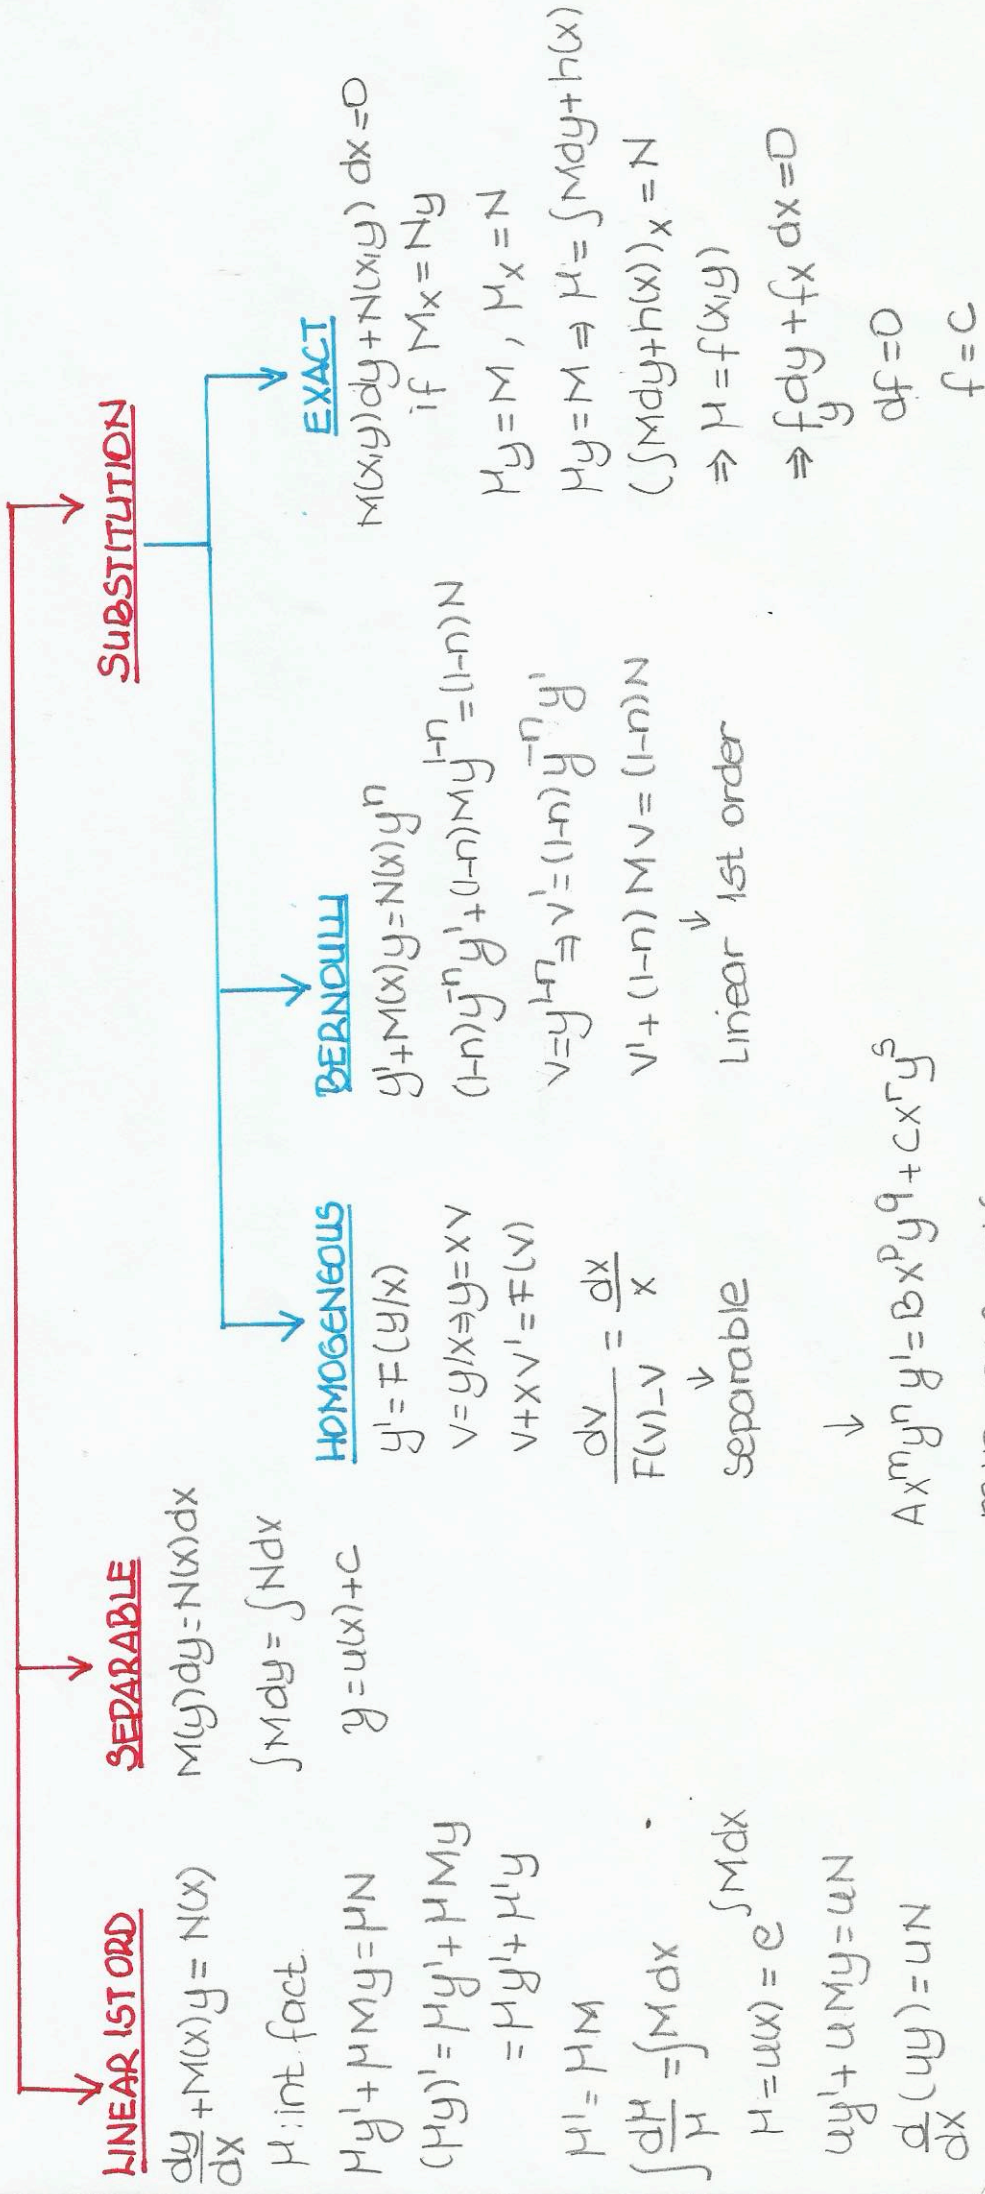 LINEAR 1ST ORD
dy/dx + M(x)y = N(x)
μ: int. fact.
μy' + μMy = μN
(μy)' = μy' + μMy
= μy' + μ'y
μ' = μM
∫dμ/μ = ∫Mdx
μ = u(x) = e^∫Mdx
uy' + uMy = uN
d/dx (uy) = uN
SEPARABLE
M(y)dy = N(x)dx
∫Mdy = ∫Ndx
y = u(x) + c
SUBSTITUTION
HOMOGENGOUS
y' = F(y/x)
v = y/x ⇒ y = xv
v + xv' = F(v)
dv/F(v)-v = dx/x
↓
Separable
↓
Ax^m y^n y' = Bx^p y^q + Cx^r y^s
BERNOULLI
y' + M(x)y = N(x)y^n
(1-n)y^-n y' + (1-n)My^1-n = (1-n)N
v = y^1-n ⇒ v' = (1-n)y^-n y'
v' + (1-n)Mv = (1-n)N
↓
Linear 1st order
EXACT
M(x,y)dy + N(x,y)dx = 0
if Mx = Ny
μy = M, μx = N
μy = M ⇒ μ = ∫Mdy + h(x)
(∫Mdy + h(x))x = N
⇒ μ = f(x,y)
⇒ fy dy + fx dx = 0
df = 0
f = c